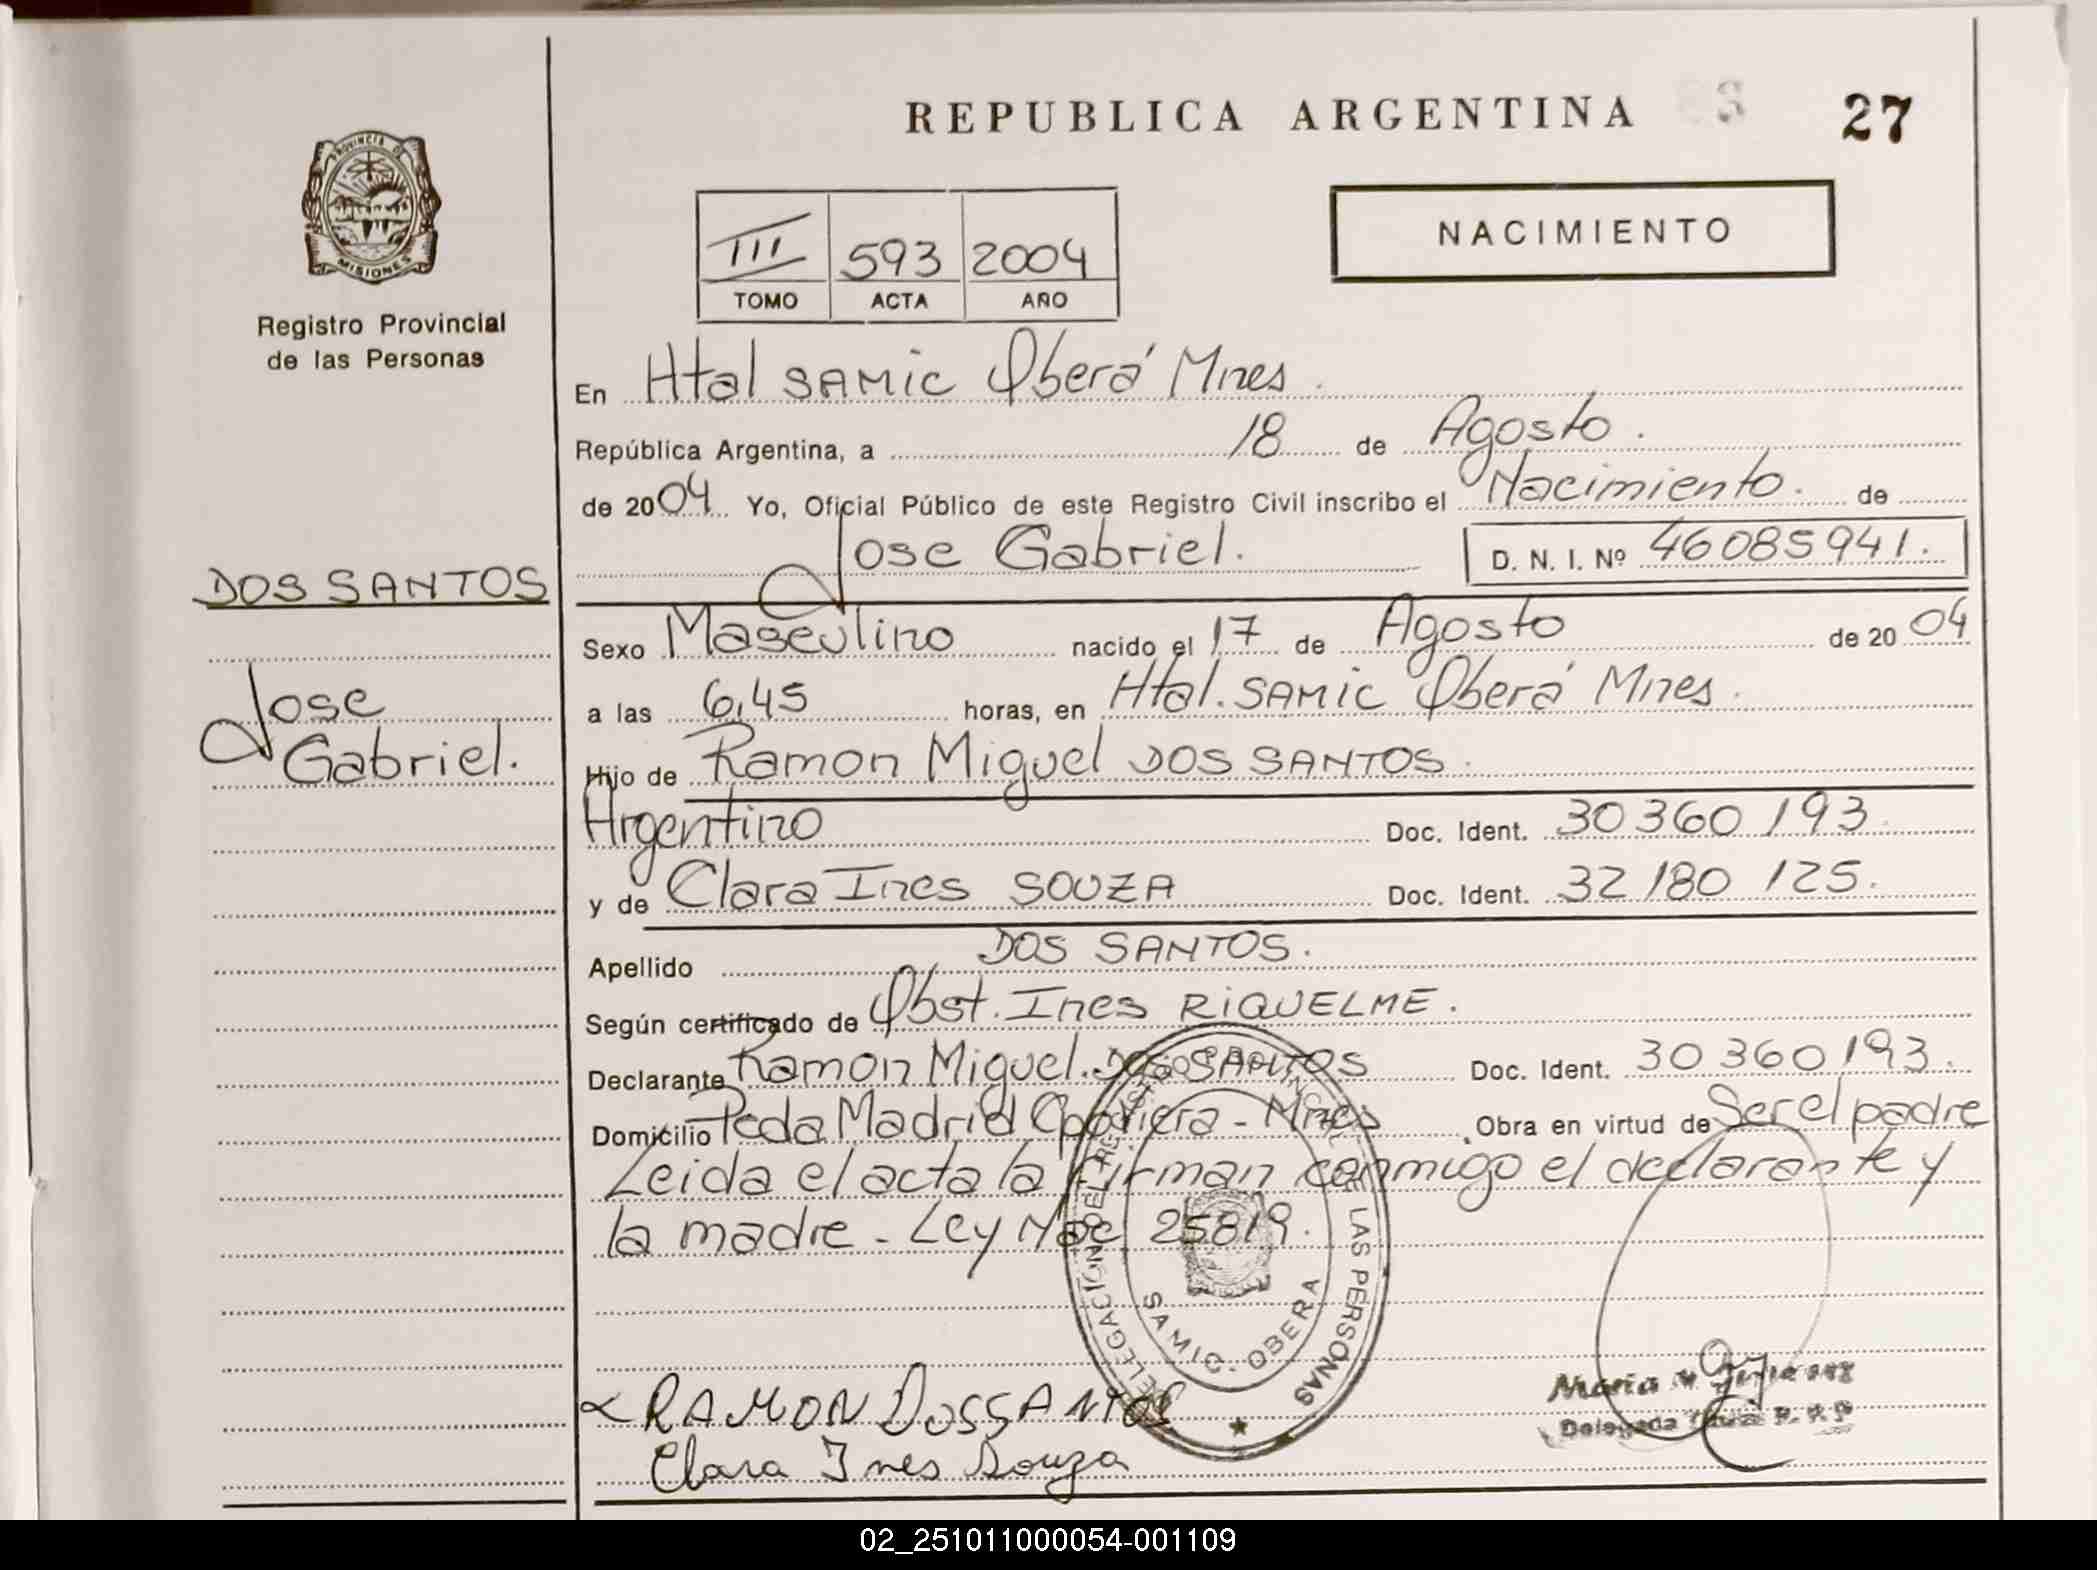 REPUBLICA ARGENTINA
27
PROVINCIA DE
MISIONES
Registro Provincial
de las Personas
III 593 2004
TOMO ACTA AÑO
NACIMIENTO
En Htal SAMIC Oberá Mnes.
República Argentina, a 18 de Agosto.
de 2004 Yo, Oficial Público de este Registro Civil inscribo el Nacimiento. de
Jose Gabriel. D. N. I. Nº 46085941.
DOS SANTOS
Jose
Gabriel.
Sexo Masculino nacido el 17 de Agosto de 2004
a las 6,45 horas, en Htal. SAMIC Oberá Mnes.
Hijo de Ramon Miguel DOS SANTOS.
Argentino Doc. Ident. 30 360 193.
y de Clara Ines SOUZA Doc. Ident. 32 180 125.
Apellido DOS SANTOS.
Según certificado de Obst. Ines RIQUELME.
Declarante Ramon Miguel. DOS SANTOS Doc. Ident. 30 360 193.
Domicilio Pcda Madrid - Mnes. Obra en virtud de Ser el padre
Leida el acta la firman conmigo el declarante y
la madre - Ley Nac 25819.
DELEGACIÓN DEL REGISTRO PROVINCIAL DE LAS PERSONAS
SAMIC - OBERA
RAMON DOSSANTOS
Clara Ines Souza
Maria
Delegada
02_251011000054-001109